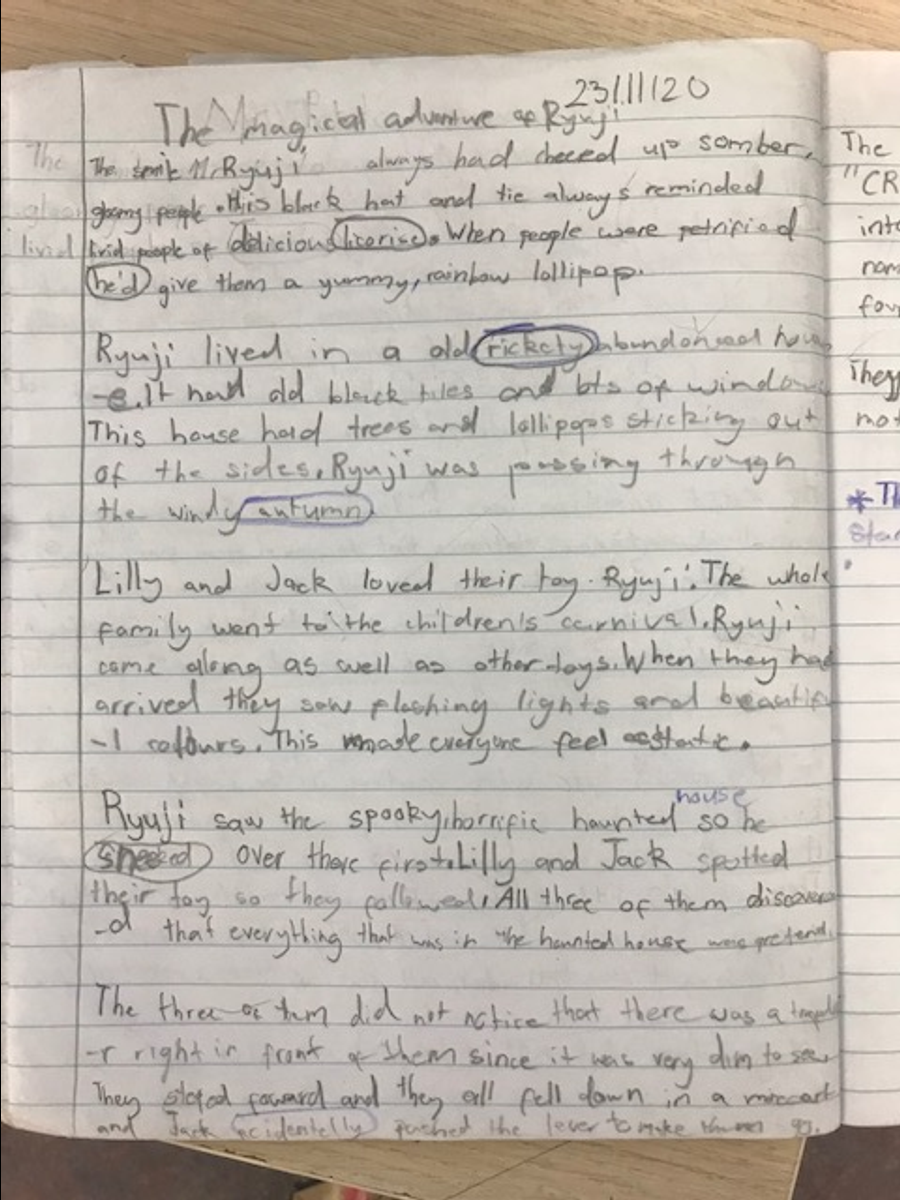 23/11/20
The Magical adventure of Ryuji
The smile Ryuji always had cheeed up somber,
gloomy people. His black hat and tie always reminded
livid people of delicious licorise. When people were petrified
he'd give them a yummy, rainbow lollipop.
Ryuji lived in a old rickety abundonead hous
-e. It had old black tiles and bts of window
This house had trees and lollipops sticking out
of the sides. Ryuji was passing through
the windy autumn
Lilly and Jack loved their toy. Ryuji. The whole
family went to the children's carnival. Ryuji
came along as well as other toys. When they had
arrived they saw flashing lights and beautif
-l colours. This made everyone feel ecstatic.
house
Ryuji saw the spooky, horrific haunted so he
over there first. Lilly and Jack spotted
their toy so they followed. All three of them discovere
-d that everything that was in the haunted house was pretend.
The three of tem did not notice that there was a
-r right in front of them since it was very dim to see.
They foward and they all fell down in a minecart
and Jack acidentelly pushed the lever to make them go.
The
livid
The
"CR
into
nam
fou
They
not
*Th
star